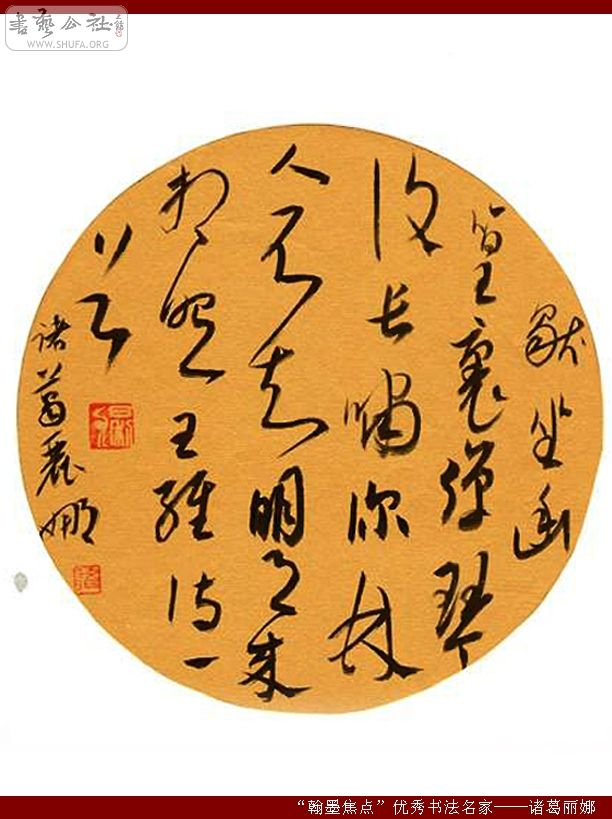 書藝公社
WWW.SHUFA.ORG
獨坐幽
篁裏彈琴
復长嘯深林
人不知明月来
相照王維诗一
首
诸葛麗娜
“翰墨焦点”优秀书法名家——诸葛丽娜